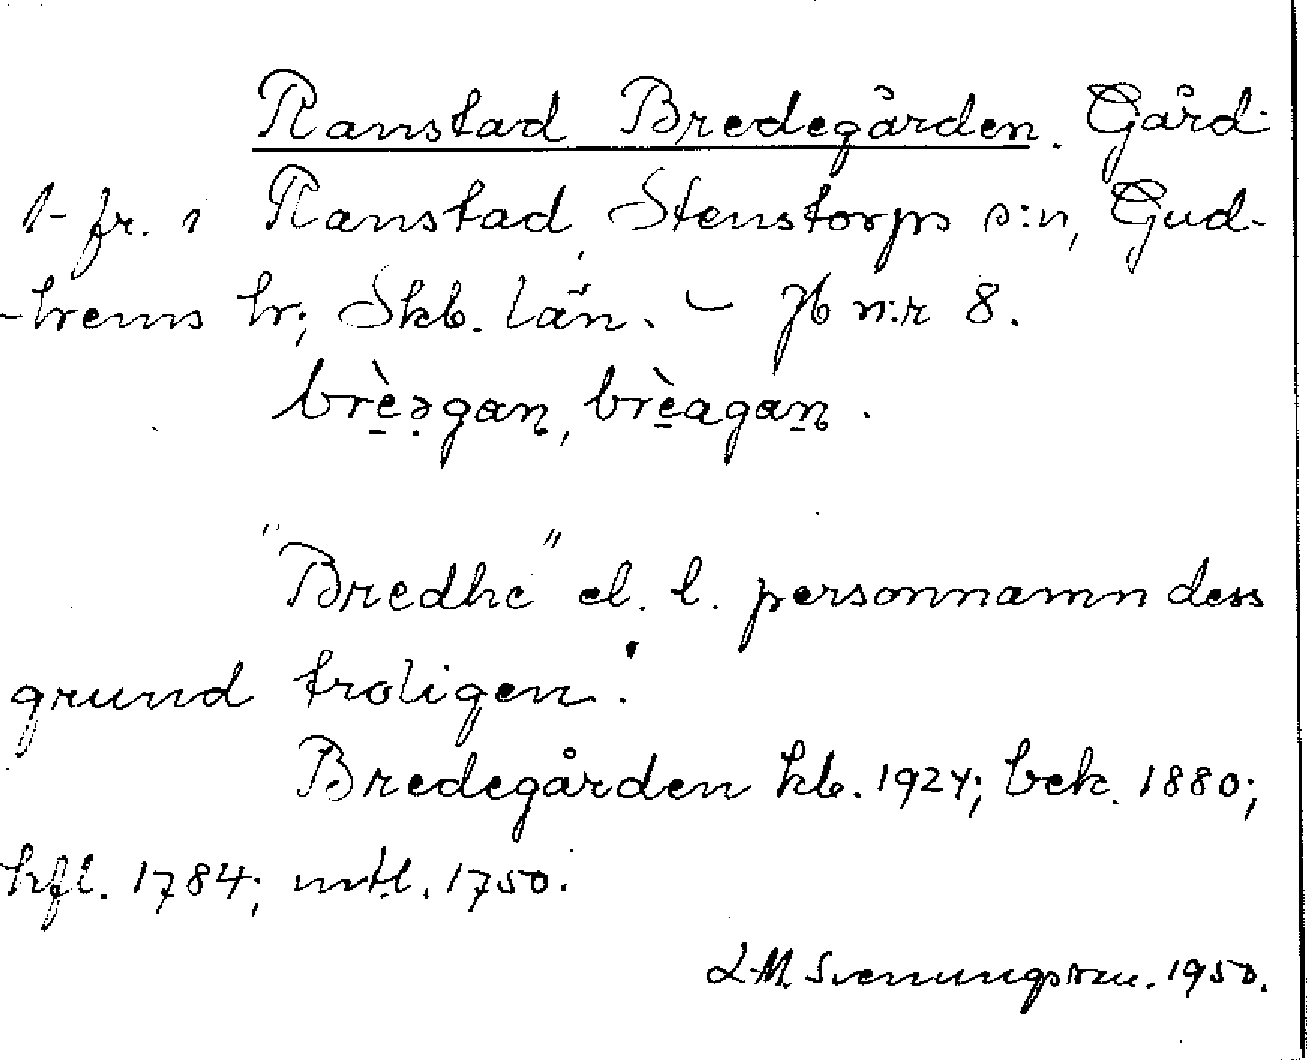 Ranstad Bredegården. Gård
1 fr. i Ranstad, Stenstorps s:n, Gud-
-hems hr; Skb. län. – Jb n:r 8.
brèəgan, brèagan.
"Bredhe" el. l. personnamn dess
grund troligen.
Bredegården kb. 1924; bek. 1880;
hfl. 1784; mtl. 1750.
L-M Svenungsson. 1950.